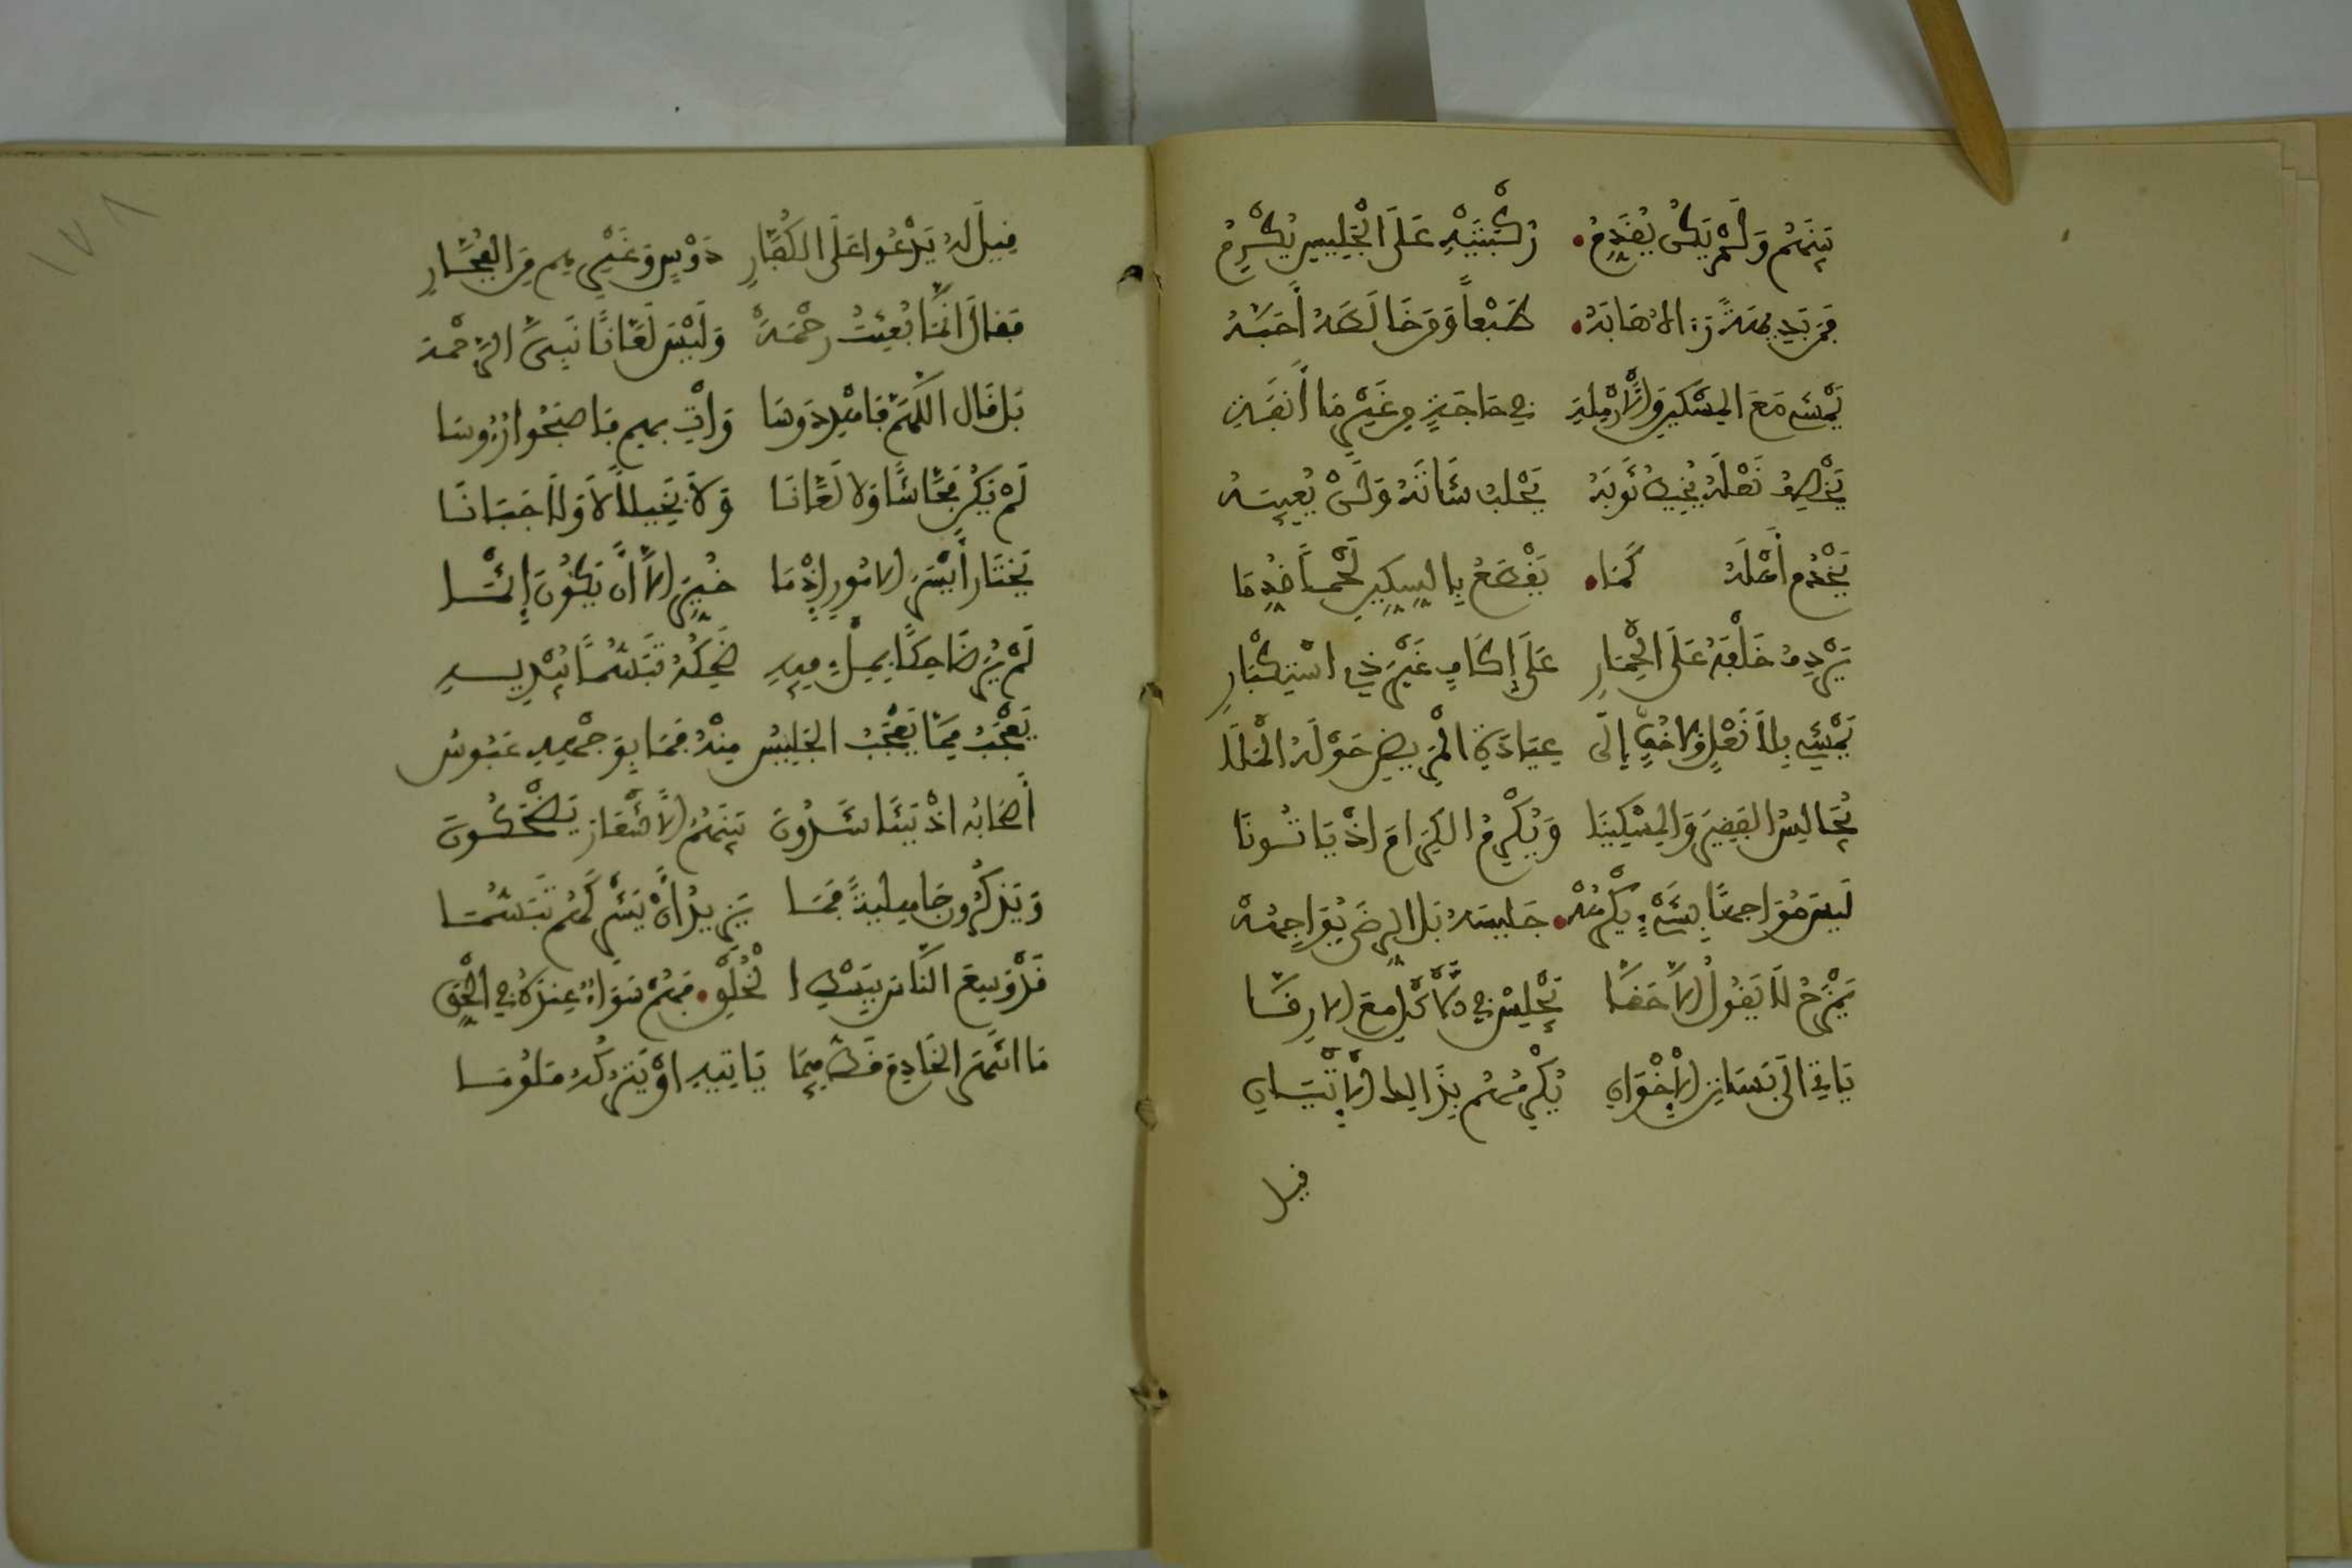 بَيْنَهُمْ وَلَمْ يَكُنْ يُقَدِّمُ رُكْبَتَيْهِ عَلَى الْجَلِيسِ يُكْرِمُ
فَمَنْ بَدِيهَةً رَءَاهُ هَابَهُ طَبْعاً وَمَنْ خَالَطَهُ أَحَبَّهُ
يَمْشِي مَعَ الْمِسْكِينِ وَالْأَرْمِلَةِ فِي حَاجَةٍ مِنْ غَيْرِ مَا أَنَفَةِ
يَخْصِفُ نَعْلَهُ يَخِيطُ ثَوْبَهُ يَحْلُبُ شَاتَهُ وَلَنْ يُعِيبَهُ
يَخْدُمُ أَهْلَهُ كَمَا يَقْطَعُ بِالسِّكِّينِ لَحْماً قُدِّمَا
يُرْدِفُ خَلْفَهُ عَلَى الْحِمَارِ عَلَى إِكَافٍ غَيْرَ ذِي اسْتِكْبَارِ
يَمْشِي بِلَا نَعْلٍ وَلَا خُفٍّ إِلَى عِيَادَةِ الْمَرِيضِ حَوْلَهُ الْمَلَا
يُجَالِسُ الْفَقِيرَ وَالْمِسْكِينَا وَيُكْرِمُ الْكِرَامَ اذْ يَاتُونَا
لَيْسَ مُوَاجِهًا بِشَيْءٍ يَكْرَهُهُ جَلِيسَهُ بَلْ بِالرِّضَى يُوَاجِهُهْ
يَمْزَحُ لَا يَقُولُ إِلَّا حَقًّا يَجْلِسُ فِي الْأَكْلِ مَعَ الْأَرِقَّا
يَاتِي إِلَى بَسَاتِنِ الْإِخْوَانِ يُكْرِمُهُمْ بِذَلِكَ الْإِتْيَانِ
قيل
قِيلَ لَهُ يَدْعُوا عَلَى الْكُفَّارِ دَوْسٍ وَغَيْرِهِمْ مِنَ الْفُجَّارِ
فَقَالَ إِنَّمَا بُعِثْتُ رَحْمَةْ وَلَيْسَ لَعَّانًا نَبِيُّ الرَّحْمَةْ
بَلْ قَالَ اللَّهُمَّ فَاهْدِ دَوْسَا وَأْتِ بِهِمْ فَاصْبَحُوا رُءُوسَا
لَمْ يَكُنْ فَحَّاشًا وَلَا لَعَّانَا وَلَا بَخِيلاً لَا وَلَا جَبَانَا
يَخْتَارُ أَيْسَرَ الْأُمُورِ إِذْ مَا خُيِّرَ إِلَّا أَنْ يَكُونَ إِثْمَا
لَمْ يُرَ ضَاحِكًا بِمِلْءِ فِيهِ ضِحْكُهُ تَبَسُّمًا يُبْدِيهِ
يَعْجَبُ مِمَّا يَعْجَبُ الْجَلِيسُ مِنْهُ فَمَا بِوَجْهِهِ عَبُوسُ
أَصْحَابُهُ اذْ يَتَنَاشَدُونَ بَيْنَهُمُ الْأَشْعَارَ يَضْحَكُونَ
وَيَذْكُرُونَ جَاهِلِيَةً فَمَا يَزِيدُ أَنْ يَشْرَكَهُمْ تَبَسُّمَا
قَدْ وَسِعَ النَّاسَ بِبَسْطِ الْخُلْقِ فَهُمْ سَوَاءٌ عِنْدَهُ فِي الْحَقِّ
مَا انْتَهَرَ الْخَادِمَ قَطُّ فِيمَا يَاتِيهِ اوْ يَتْرُكُهُ مَلُومَا